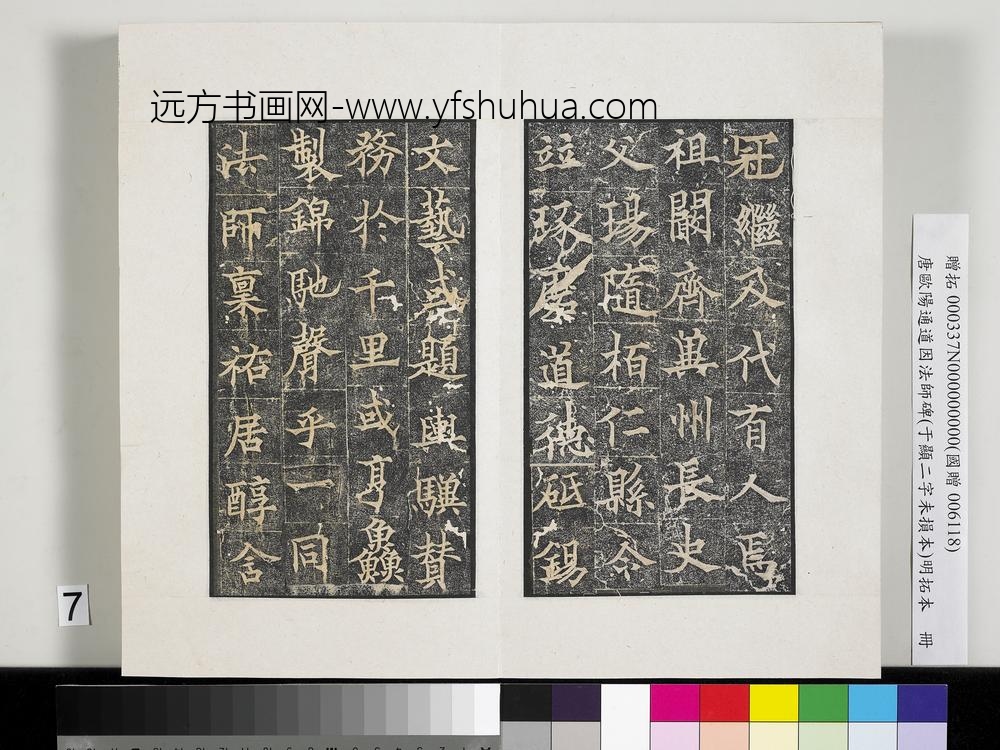 远方书画网-www.yfshuhua.com
冠繼及代有人焉
祖闞齊冀州長史
父瑒隨柏仁縣令
竝琢磨道德砥錫
文藝或題輿驥賛
務於千里或亨鱻
製錦馳聲乎一同
法師稟祐居醇含
贈拓 000337N000000000(國贈 006118)
唐歐陽通道因法師碑(于顯二字未損本)明拓本 冊
7